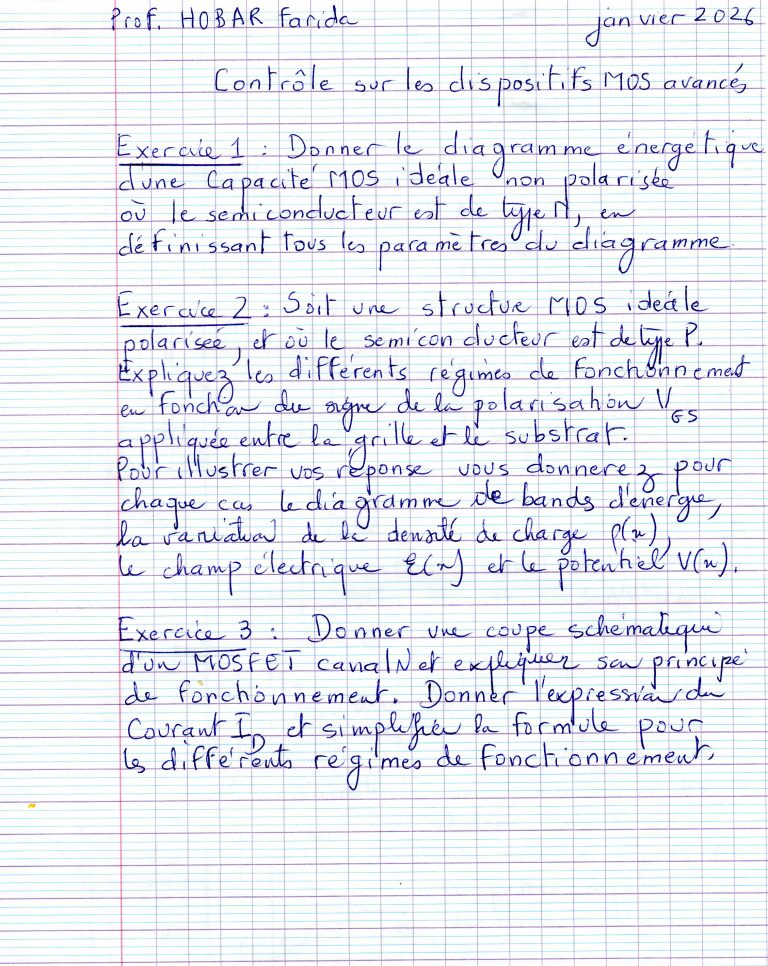 Prof. HOBAR Farida janvier 2026
Contrôle sur les dispositifs MOS avancés
Exercice 1 : Donner le diagramme énergétique
d'une Capacité MOS idéale non polarisée
où le semiconducteur est de type N, en
définissant tous les paramètres du diagramme.
Exercice 2 : Soit une structue MOS idéale
polariseé, et où le semiconducteur est de type P.
Expliquez les différents régimes de fonctionnement
en fonction du signe de la polarisation VGS
appliquée entre la grille et le substrat.
Pour illustrer vos réponse vous donnerez pour
chaque cas le diagramme de bands d'énergie,
la variation de la densité de charge ρ(x),
le champ électrique ξ(x) et le potentiel V(x).
Exercice 3 : Donner une coupe schématique
d'un MOSFET canal N et expliquer son principe
de fonctionnement. Donner l'expression du
Courant ID et simplifier la formule pour
les différents régimes de fonctionnement.